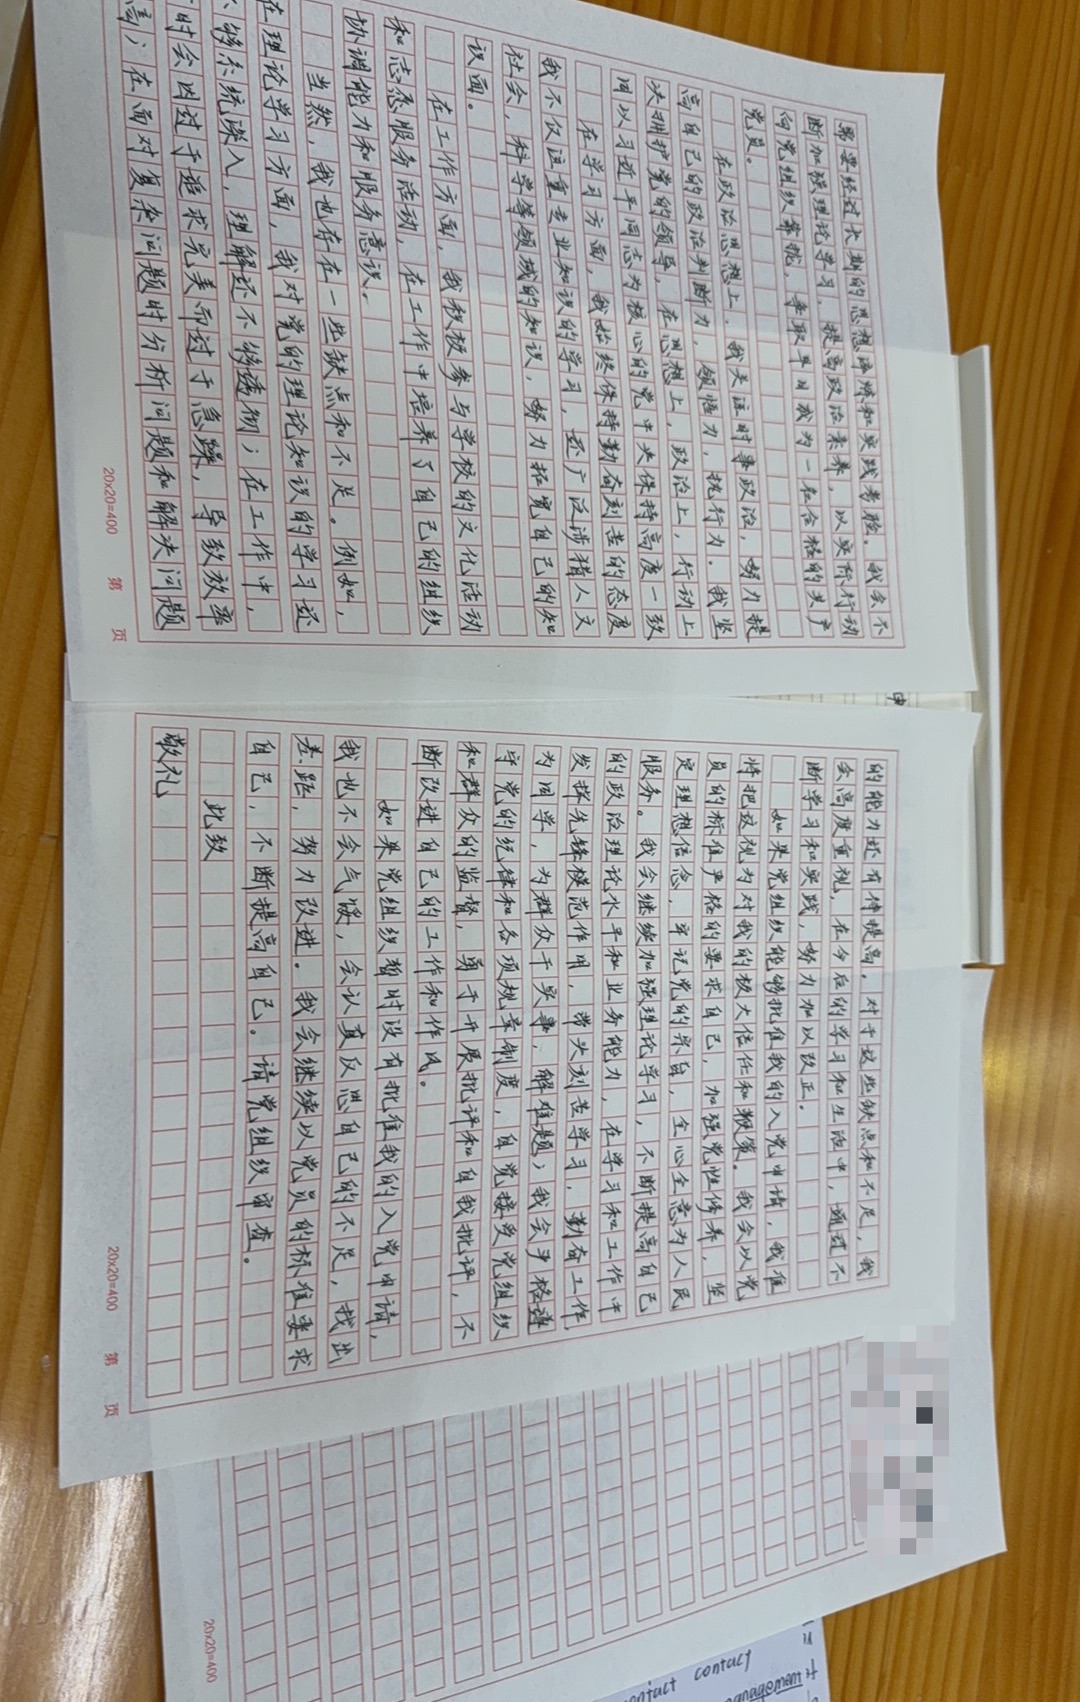 需要经过长期的思想淬炼和实践考验。我会不
断加强理论学习，提高政治素养，以实际行动
向党组织靠拢，争取早日成为一名合格的共产
党员。
在政治思想上，我关注时事政治，努力提
高自己的政治判断力，领悟力，执行力。我坚
决拥护党的领导，在思想上，政治上，行动上
同以习近平同志为核心的党中央保持高度一致
在学习方面，我始终保持勤奋刻苦的态度
我不仅注重专业知识的学习，还广泛涉猎人文
社会，科学等领域的知识，努力拓宽自己的知
识面。
在工作方面，我积极参与学校的文化活动
和志愿服务活动，在工作中培养了自己的组织
协调能力和服务意识。
当然，我也存在一些缺点和不足。例如，
在理论学习方面，我对党的理论知识的学习还
不够系统深入，理解还不够透彻；在工作中，
时会因过于追求完美而过于急躁，导致效率
高；在面对复杂问题时分析问题和解决问题
20x20=400 第 页
的能力还有待提高。对于这些缺点和不足，我
会高度重视，在今后的学习和生活中，通过不
断学习和实践，努力加以改正。
如果党组织能够批准我的入党申请，我准
将把这视为对我的极大信任和鞭策。我会以党
员的标准严格的要求自己，加强党性修养，坚
定理想信念，牢记党的宗旨，全心全意为人民
服务。我会继续加强理论学习，不断提高自己
的政治理论水平和业务能力，在学习和工作中
发挥先锋模范作用，带头刻苦学习，勤奋工作，
为同学，为群众干实事，解难题；我会严格遵
守党的纪律和各项规章制度，自觉接受党组织
和群众的监督，勇于开展批评和自我批评，不
断改进自己的工作和作风。
如果党组织暂时没有批准我的入党申请，
我也不会气馁，会认真反思自己的不足，找出
差距，努力改进。我会继续以党员的标准要求
自己，不断提高自己。请党组织审查。
此致
敬礼
20x20=400 第 页
20x20=400
contact
management